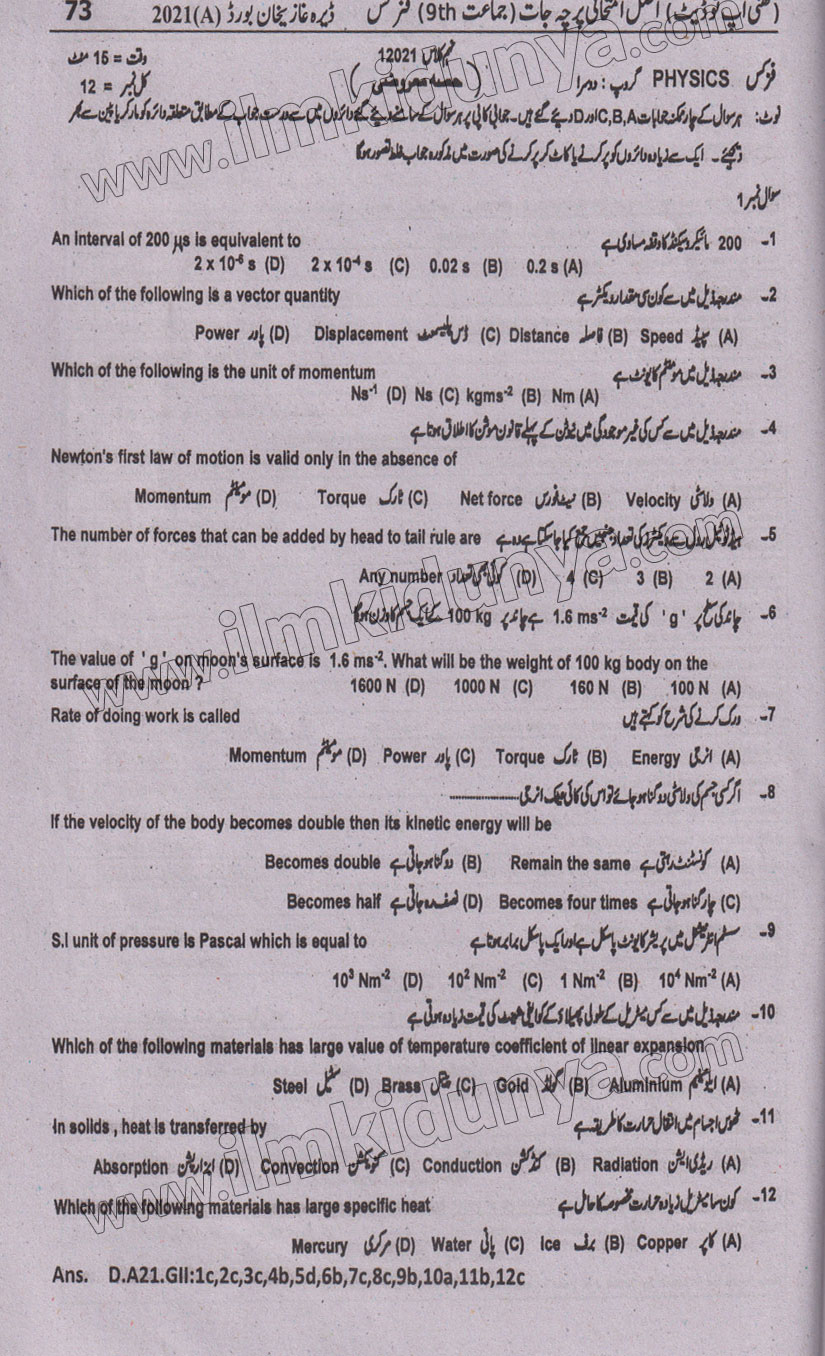 73 ڈیرہ غازیخان بورڈ 2021(A) فزکس (جماعت 9th) پرچہ جات
وقت = 15 منٹ 12021
فزکس PHYSICS گروپ : دوسرا (حصہ معروضی) کل نمبر = 12
نوٹ: ہر سوال کے چار ممکنہ جوابات C,B,A اور D دیئے گئے ہیں۔ جوابی کاپی پر ہر سوال کے سامنے دیئے گئے دائروں میں سے درست جواب کے مطابق متعلقہ دائرہ کو مارکر یا پین سے بھر
دیجئے۔ ایک سے زیادہ دائروں کو پر کرنے یا کاٹ کر پر کرنے کی صورت میں مذکورہ جواب غلط تصور ہوگا
سوال نمبر 1
An interval of 200 µs is equivalent to 1- 200 مائیکرو سیکنڈ کا وقفہ مساوی ہے
2 x 10⁻⁶ s (D) 2 x 10⁻⁴ s (C) 0.02 s (B) 0.2 s (A)
Which of the following is a vector quantity 2- مندرجہ ذیل میں سے کون سی مقدار ویکٹر ہے
Power پاور (D) Displacement ڈس پلیسمنٹ (C) Distance فاصلہ (B) Speed سپیڈ (A)
Which of the following is the unit of momentum 3- مندرجہ ذیل میں مومنٹم کا یونٹ ہے
Ns⁻¹ (D) Ns (C) kgms⁻² (B) Nm (A)
4- مندرجہ ذیل میں سے کس کی غیر موجودگی میں نیوٹن کے پہلے قانون موشن کا اطلاق ہوتا ہے
Newton's first law of motion is valid only in the absence of
Momentum مومنٹم (D) Torque ٹارک (C) Net force نیٹ فورس (B) Velocity ولاسٹی (A)
The number of forces that can be added by head to tail rule are 5- ہیڈ ٹو ٹیل رول سے ویکٹرز کی تعداد جنہیں جمع کیا جا سکتا ہے وہ ہے
Any number کوئی بھی تعداد (D) 4 (C) 3 (B) 2 (A)
6- چاند کی سطح پر 'g' کی قیمت 1.6 ms⁻² ہے چاند پر 100 kg کے ایک جسم کا وزن ہوگا
The value of 'g' on moon's surface is 1.6 ms⁻². What will be the weight of 100 kg body on the
surface of the moon ? 1600 N (D) 1000 N (C) 160 N (B) 100 N (A)
Rate of doing work is called 7- ورک کرنے کی شرح کو کہتے ہیں
Momentum مومنٹم (D) Power پاور (C) Torque ٹارک (B) Energy انرجی (A)
8- اگر کسی جسم کی ولاسٹی دوگنا ہو جائے تو اس کی کائی نیٹک انرجی ....................
If the velocity of the body becomes double then its kinetic energy will be
Becomes double دوگنا ہو جاتی ہے (B) Remain the same کونسٹنٹ رہتی ہے (A)
Becomes half نصف رہ جاتی ہے (D) Becomes four times چار گنا ہو جاتی ہے (C)
S.I unit of pressure is Pascal which is equal to 9- سسٹم انٹرنیشنل میں پریشر کا یونٹ پاسکل ہے اور ایک پاسکل برابر ہوتا ہے
10³ Nm⁻² (D) 10² Nm⁻² (C) 1 Nm⁻² (B) 10⁴ Nm⁻² (A)
10- مندرجہ ذیل میں سے کس میٹریل کے طولی پھیلاؤ کے کوایفی شینٹ کی قیمت زیادہ ہوتی ہے
Which of the following materials has large value of temperature coefficient of linear expansion
Steel سٹیل (D) Brass پیتل (C) Gold گولڈ (B) Aluminium ایلومینیم (A)
In solids , heat is transferred by 11- ٹھوس اجسام میں انتقال حرارت کا طریقہ ہے
Absorption ابزارپشن (D) Convection کنویکشن (C) Conduction کنڈکشن (B) Radiation ریڈی ایشن (A)
Which of the following materials has large specific heat 12- کون سا میٹریل زیادہ حرارت مخصوصہ کا حامل ہے
Mercury مرکری (D) Water پانی (C) Ice برف (B) Copper کاپر (A)
Ans. D.A21.GII:1c,2c,3c,4b,5d,6b,7c,8c,9b,10a,11b,12c
www.ilmkidunya.com
www.ilmkidunya.com
www.ilmkidunya.com